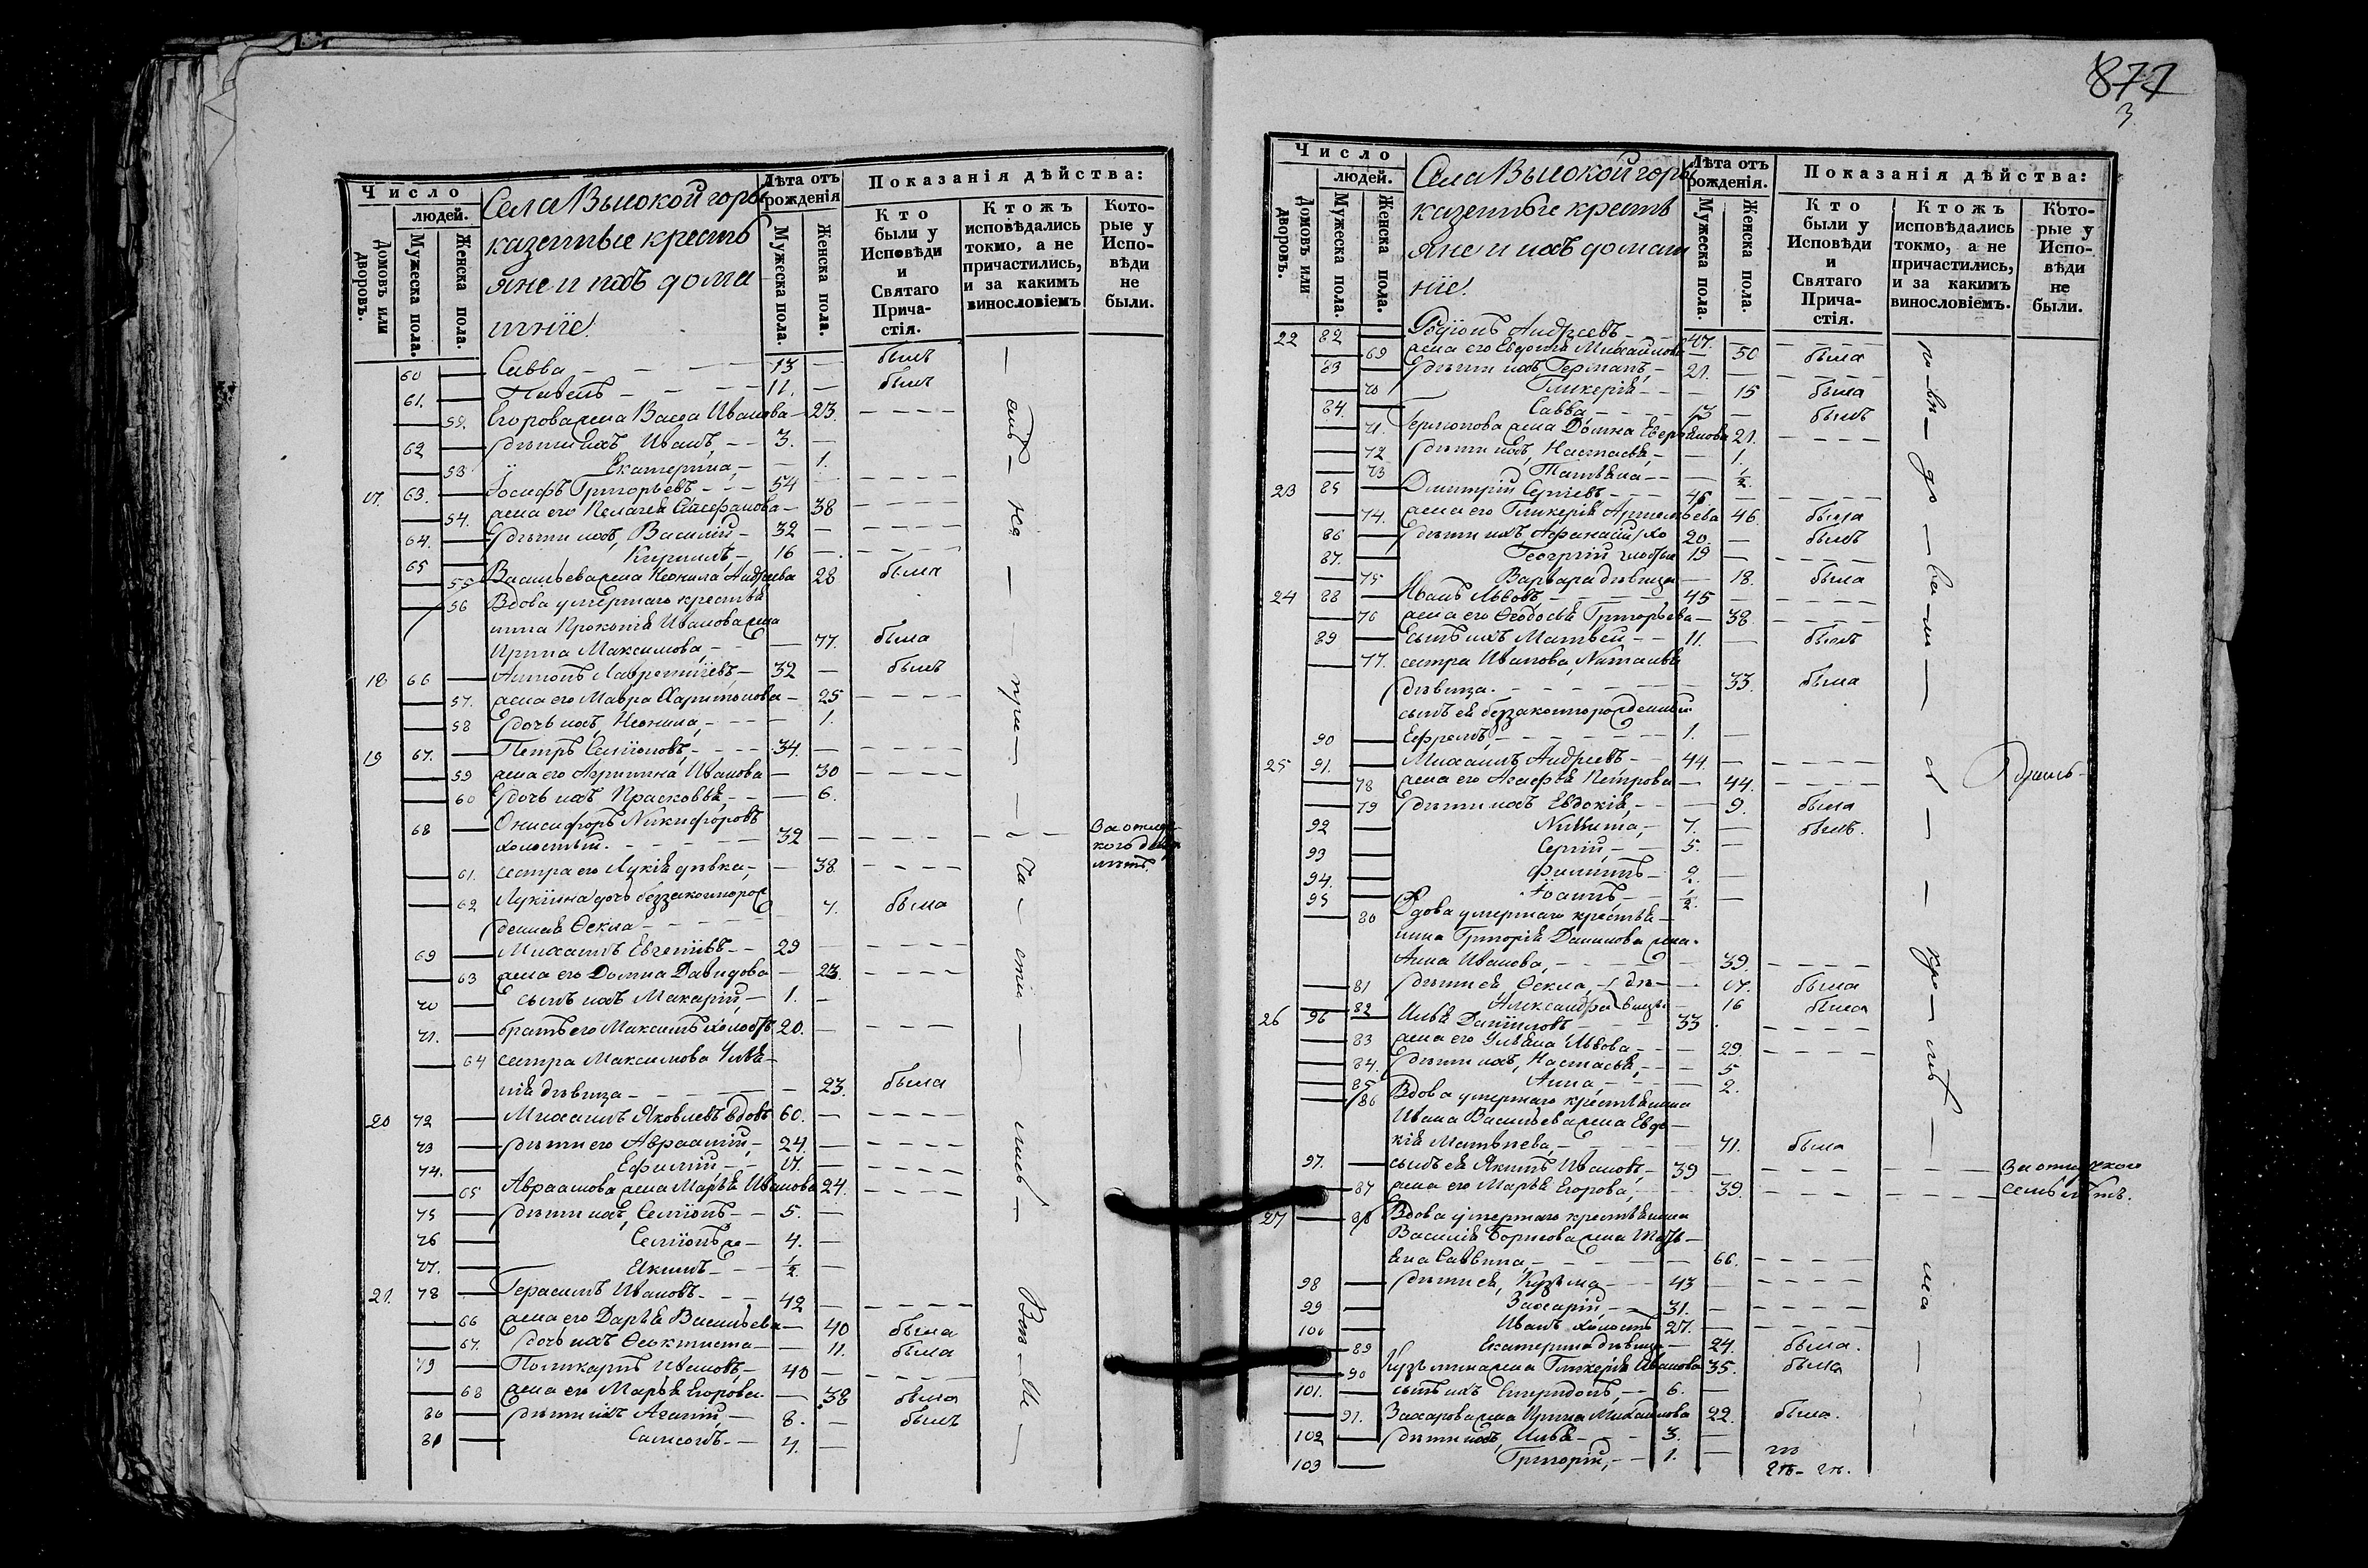 Число
людей.
Домовъ или дворовъ.
Мужеска пола.
Женска пола.
Села Высокой горы
казенные кресть
яне и ихъ дома
шнїе
Лѣта отъ рожденія
Мужеска пола.
Женска пола.
Показанія дѣйства:
Кто были у Исповѣди и Святаго Прича-стія.
Ктожъ исповѣдались токмо, а не причастились, и за какимъ винословіемъ
Кото-рые у Испо-вѣди не были.
60 Савва 13 былъ
61. Павелъ 11. былъ
52. Егорова жена Васса Иванова 23.
62 дѣти ихъ Иванъ 3.
53 Екатерина 1.
17. 63. Іосифъ Григорьевъ 54
54. жена его Пелагея Стефанова 38
64. дѣти ихъ, Василій 32
65 Кирилъ 16
55 Васильева жена Неонила Андреева 28 была
56 Вдова умершаго крестья
нина Прокопія Иванова жена
Ирина Максимова, 77. была
18 66 Антонъ Лаврентіевъ 32 былъ
57. жена его Мавра Харитонова 25
58 дочь ихъ, Неонила, 1.
19 67. Петръ Семіоновъ, 34.
59 жена его Агрипина Иванова 30
60 дочь ихъ Прасковья, 6.
68 Онисифоръ Никифоровъ
холостый. 32 За отлуч
кого
61. сестра его Лукія дѣвка, 38.
62 Лукіина дочь беззаконнорож
денная Ѳекла 7. была
69 Михаилъ Евгеніевъ 29
63 жена его Домна Давидова 23.
70 сынъ ихъ Макарій, 1.
71. братъ его Максимъ холостъ 20.
64 сестра Максимова Улья
нія дѣвица 23. была
20 72 Михаилъ Яковлевъ вдовъ 60.
73 дѣти его Авраамій, 24.
74. Ефимій, 17.
65 Авраамова жена Марья Иванова 24.
75 дѣти ихъ, Семіонъ 5.
76 Семіонъ же 4.
77. Якимъ 1/2.
21. 78 Герасимъ Ивановъ 42
66 жена его Дарья Васильева 40 была
67. дочь ихъ Ѳеоктиста 11. была
79 Поликарпъ Ивановъ, 40
68 жена его Марья Егорова 38 была
80 дѣти ихъ Агапій, 8. былъ
81 Самсонъ 4.
877
3
Число
людей.
Домовъ или дворовъ.
Мужеска пола.
Женска пола.
Села Высокой горы
казенные кресть
яне и ихъ домаш
нїе.
Лѣта отъ рожденія.
Мужеска пола.
Женска пола.
Показанія дѣйства:
Кто были у Исповѣди и Святаго Прича-стія.
Ктожъ исповѣдались токмо, а не причастились, и за какимъ винословіемъ.
Кото-рые у Испо-вѣди не были.
22 82 Родіонъ Андреевъ 47.
69 жена его Евдокія Михаилова 50 была
83 дѣти ихъ, Германъ, 21.
70 Гликерія 15 была
84. Савва, 13 былъ
71. Германова жена Домна 21.
72 дѣти ихъ, Настасья, 1.
73 Татьяна 1/2.
23 85 Димитрій Сергіевъ 45
74. жена его Гликерія Артемьева 46. была
86 дѣти ихъ Афанасій, хо 20. былъ
87. Георгій лостые 19
75 Варвара дѣвица 18. была
24 88 Иванъ Львовъ 45
76 жена его Ѳеодосья Григорьева 38.
89 сынъ ихъ Матвей 11. былъ
77. сестра Иванова, Наталья
дѣвица. 33. была
сынъ ея беззаконнорожденный
90 Ефремъ, 1.
25 91. Михаилъ Андреевъ 44.
78 жена его Агафья Петрова 44.
79 дѣти ихъ Евдокія, 9. была
92 Никита, 7. былъ.
93 Сергій, 5.
94. Филипъ 2.
95 Іоанъ, 1/2.
80 Вдова умершаго крестья
нина Григорія Данилова жена
Анна Иванова, 39.
81 дѣти ея, Ѳекла, дѣ 17. была
82 Александра вицы 16 была
26 96 Илья Даніиловъ 33
83 жена его Ульяна Львова 29.
84. дѣти ихъ, Настасья, 5
85 Анна, 2.
86 Вдова умершаго крестьянина
Ивана Васильева жена Евдо
кія Матвѣева, 71. была
97. сынъ ея Якимъ Ивановъ, 39 За отлучкого
87 жена его Марья Егорова, 39. семь лѣтъ.
27 88 Вдова умершаго крестьянина
Василія Борисова жена Тать
яна Саввина, 66.
98 дѣти ея, Кузьма 43
99 Захарій, 31.
100 Иванъ холостъ 27.
89 Екатерина дѣвица 24. была.
90 Кузьмина жена Гликерія Иванова 35. была
101. сынъ ихъ Спиридонъ, 6.
91. Захарова жена Ирина Михаилова 22. была.
102 дѣти ихъ, Илья 3.
103 Григорій, 1.